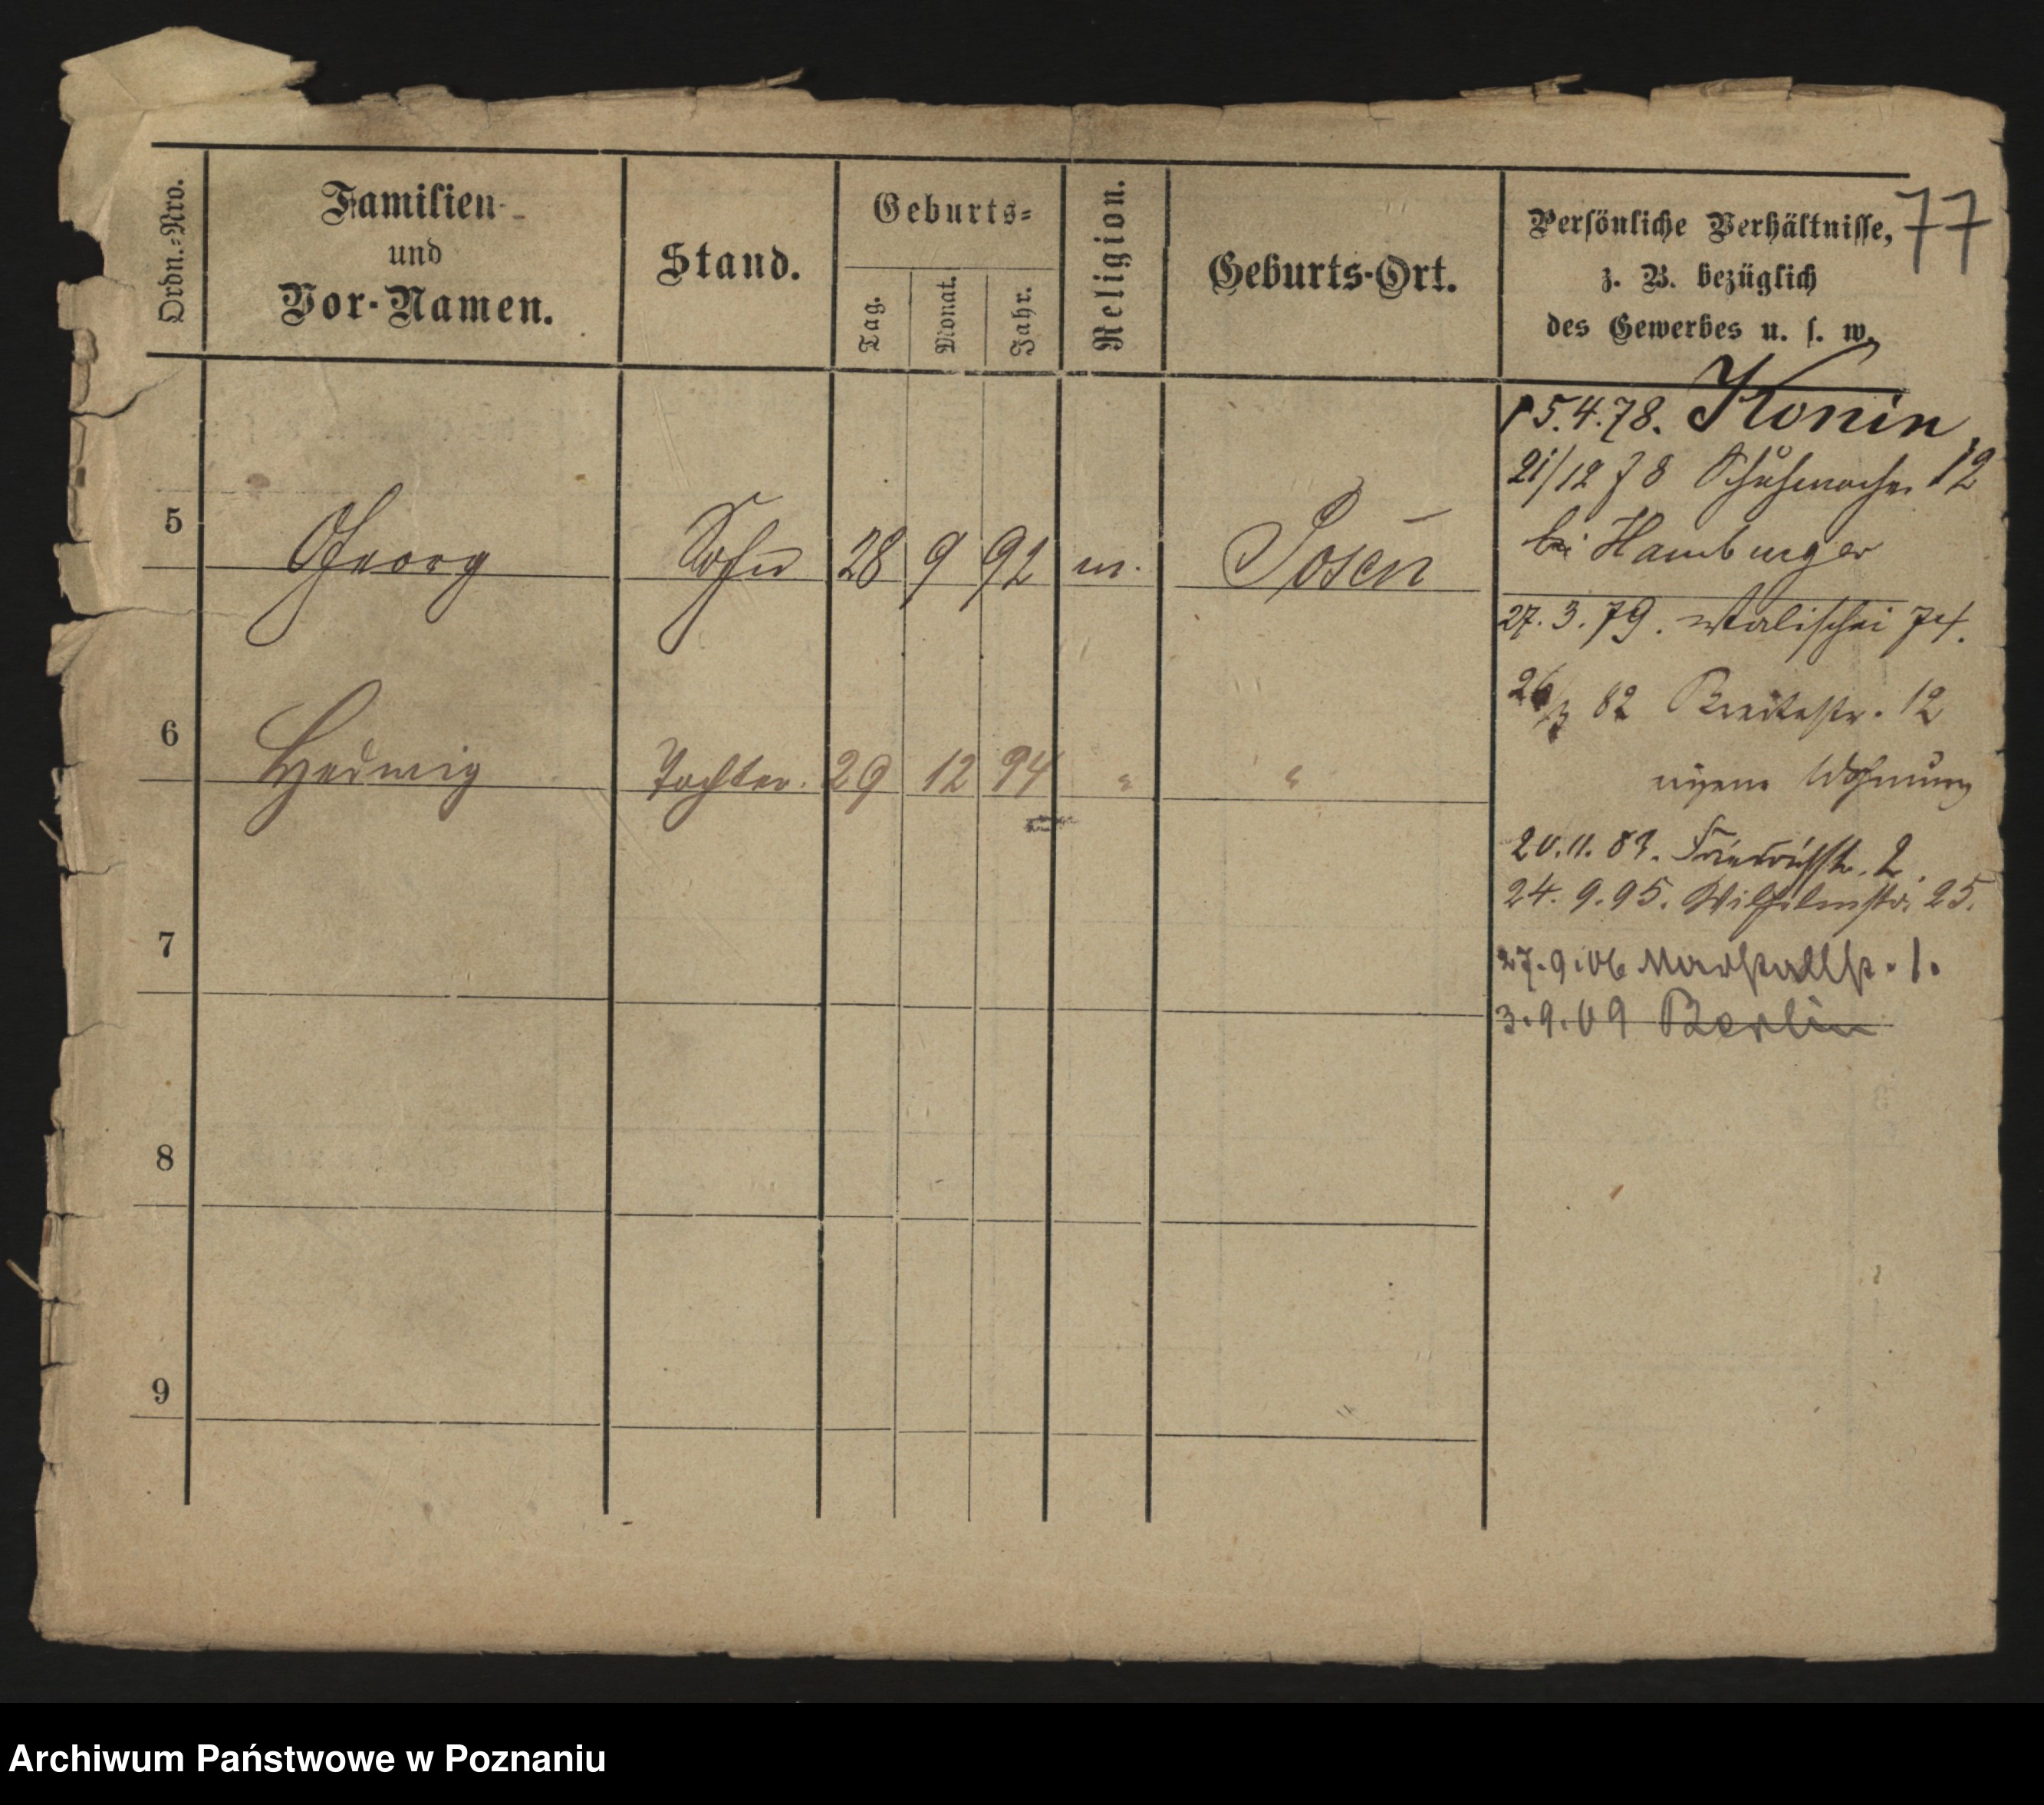 77
Ordn.-Nro.
Familien-
und
Vor-Namen.
Stand.
Geburts-
Tag.
Monat.
Jahr.
Religion.
Geburts-Ort.
Persönliche Verhältnisse,
z. B. bezüglich
des Gewerbes u. s. w.
5.4.78. Konin
21/12 78 Schuhmacher 12
bei Hamburger
5 Georg Sohn 28 9 92 m. Posen
27. 3. 79. Wallischei 74.
26/3 82 Breitestr. 12
eigene Wohnung
6 Hedwig Tochter. 29 12 94 " "
20.11.83. Friedrichstr. 2.
24. 9. 95. Wilhelmstr. 25.
7
27.9.06 Marstallstr. 1.
3.9.09 Berlin
8
9
Archiwum Państwowe w Poznaniu